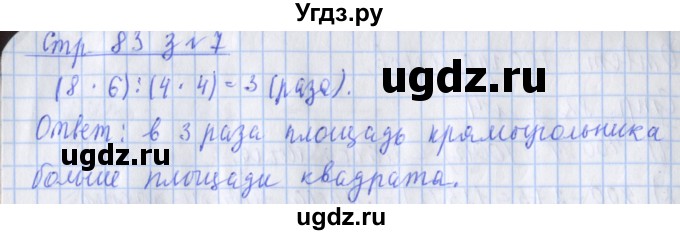 Угдз.ру
Стр 83 з №7
(8 · 6) : (4 · 4) = 3 (раза).
ugdz.ru
Ответ: в 3 раза площадь прямоугольника
ugdz.ru ugdz.ru
больше площади квадрата.
ugdz.ru